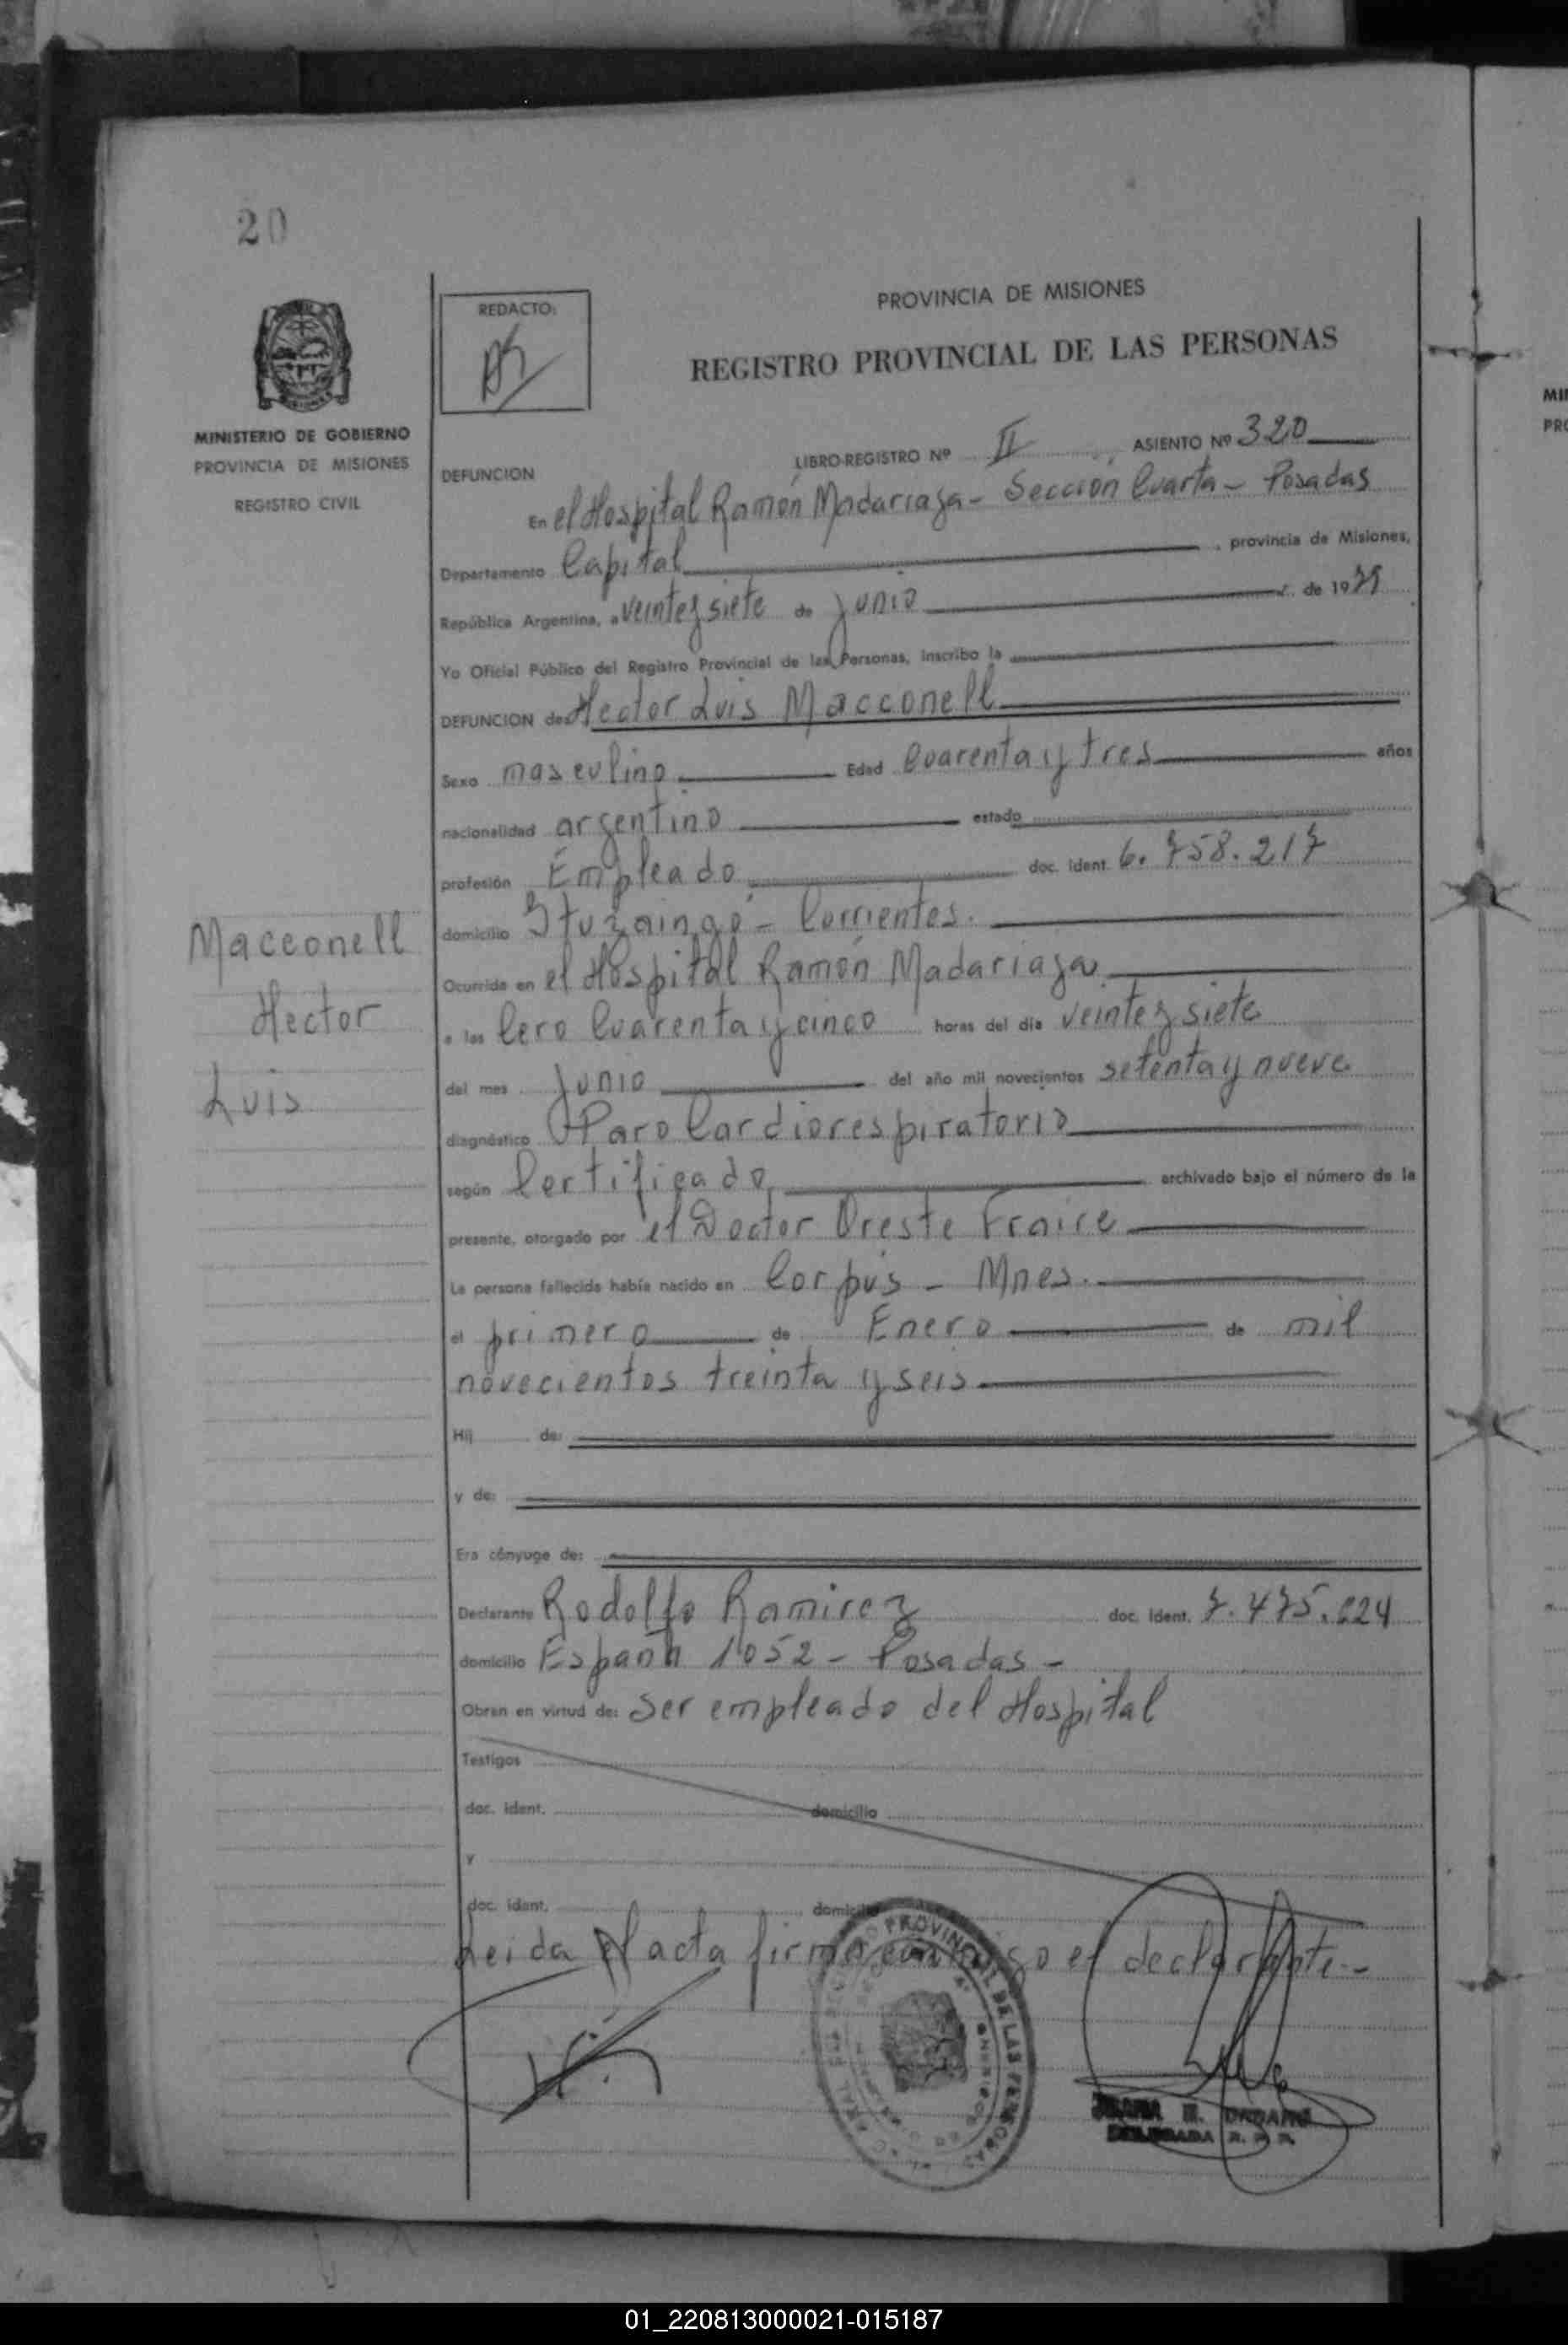 20
REDACTO:
PROVINCIA DE MISIONES
REGISTRO PROVINCIAL DE LAS PERSONAS
MINISTERIO DE GOBIERNO
PROVINCIA DE MISIONES
REGISTRO CIVIL
LIBRO-REGISTRO Nº II ASIENTO Nº 320
DEFUNCION
En el Hospital Ramón Madariaga - Sección Cuarta - Posadas
Departamento Capital, provincia de Misiones,
República Argentina, a veinte y siete de junio de 1979
Yo Oficial Público del Registro Provincial de las Personas, inscribo la
DEFUNCION de: Hector Luis Macconell
Sexo masculino Edad Cuarenta y tres años
nacionalidad argentino estado
profesión Empleado doc. ident. 6.758.217
domicilio Ituzaingó - Corrientes.
Ocurrida en el Hospital Ramón Madariaga
a las Cero Cuarenta y cinco horas del día veinte y siete
del mes junio del año mil novecientos setenta y nueve
diagnóstico Paro Cardiorespiratorio
según Certificado archivado bajo el número de la
presente, otorgado por el Doctor Oreste Fraire
La persona fallecida había nacido en Corpus - Mnes.
el primero de Enero de mil
novecientos treinta y seis
Hij de:
y de:
Era cónyuge de:
Declarante Rodolfo Ramirez doc. ident. 7.475.224
domicilio España 1052 - Posadas -
Obran en virtud de: Ser empleado del Hospital
Testigos
doc. ident. domicilio
y
doc. ident. domicilio
Leida el acta firma conmigo el declarante.-
Macconell
Hector
Luis
PROVINCIAL DE LAS PERSONAS
DELEGADA R. P. P.
MI
PRO
01_220813000021-015187